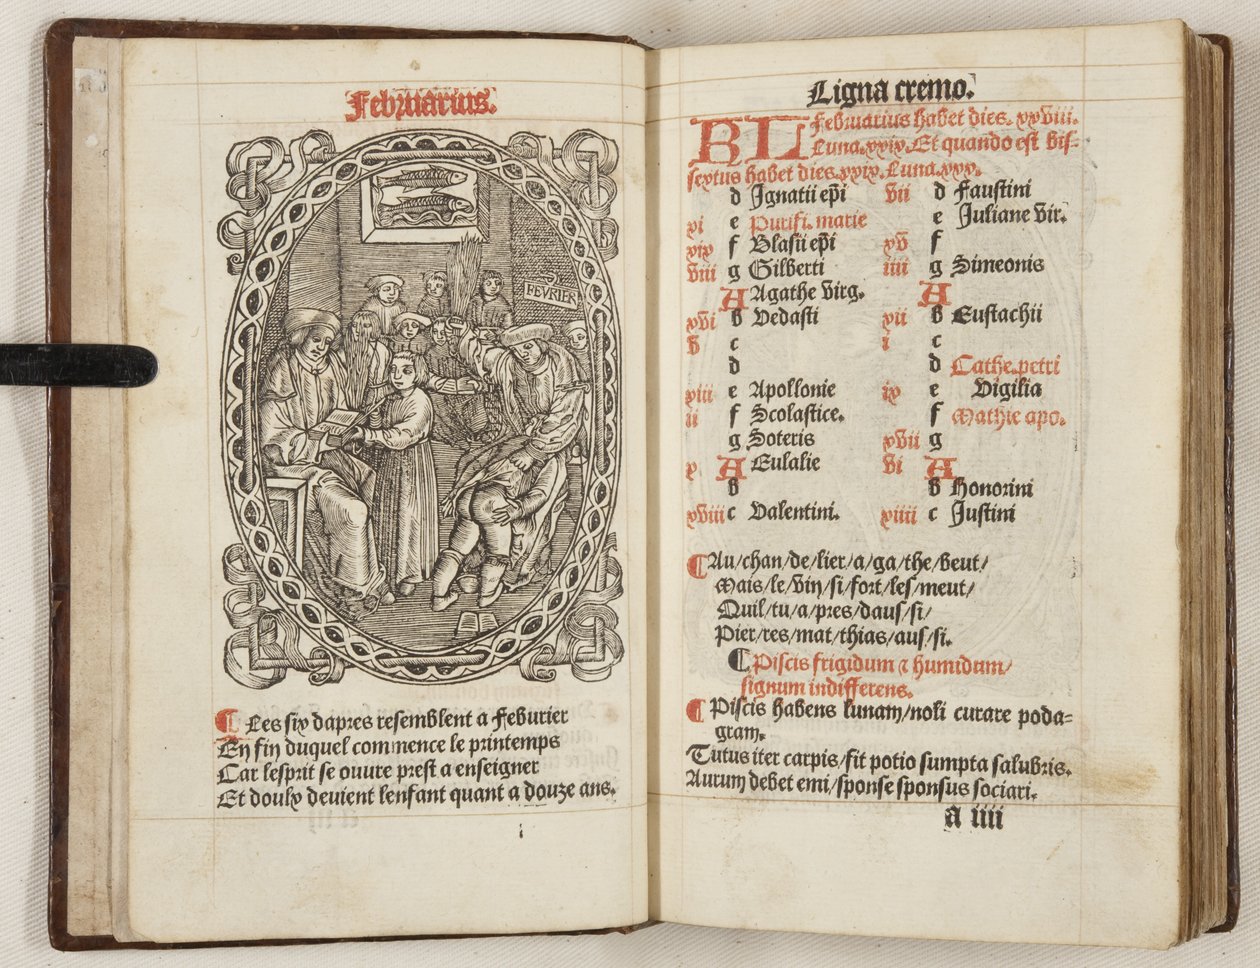 Februarius.
FEVRIER
Les six dapres resemblent a Feburier
En fin duquel commence le printemps
Car lesprit se ouvre prest a enseigner
Et doulx devient lenfant quant a douze ans.
Ligna cremo.
KL Februarius habet dies. xxviii.
Luna. xxix. Et quando est bis-
sextus habet dies. xxix. Luna. xxx.
d Ignatii ep̄i
xi e Purifi. marie
xix f Blasii ep̄i
viii g Gilberti
A Agathe virg.
xvi b Vedasti
v c
d
xiii e Apollonie
ii f Scolastice.
g Soteris
x A Eulalie
b
xviii c Valentini.
vii d Faustini
e Juliane vir.
xv f
iiii g Simeonis
A
xii b Eustachii
i c
d Cathe. petri
ix e Vigilia
f Mathie apo.
xvii g
vi A
b Honorini
xiiii c Justini
Au/chan/de/lier/a/ga/the/beut/
Mais/le/vin/si/fort/les/meut/
Quil/tu/a/pres/dauf/si/
Pier/res/mat/thias/aus/si.
Piscis frigidum ⁊ humidum/
signum indifferens.
Piscis habens lunam/noli curare poda-
gram.
Tutus iter carpis/fit potio sumpta salubris.
Aurum debet emi/sponse sponsus sociari.
a iiii